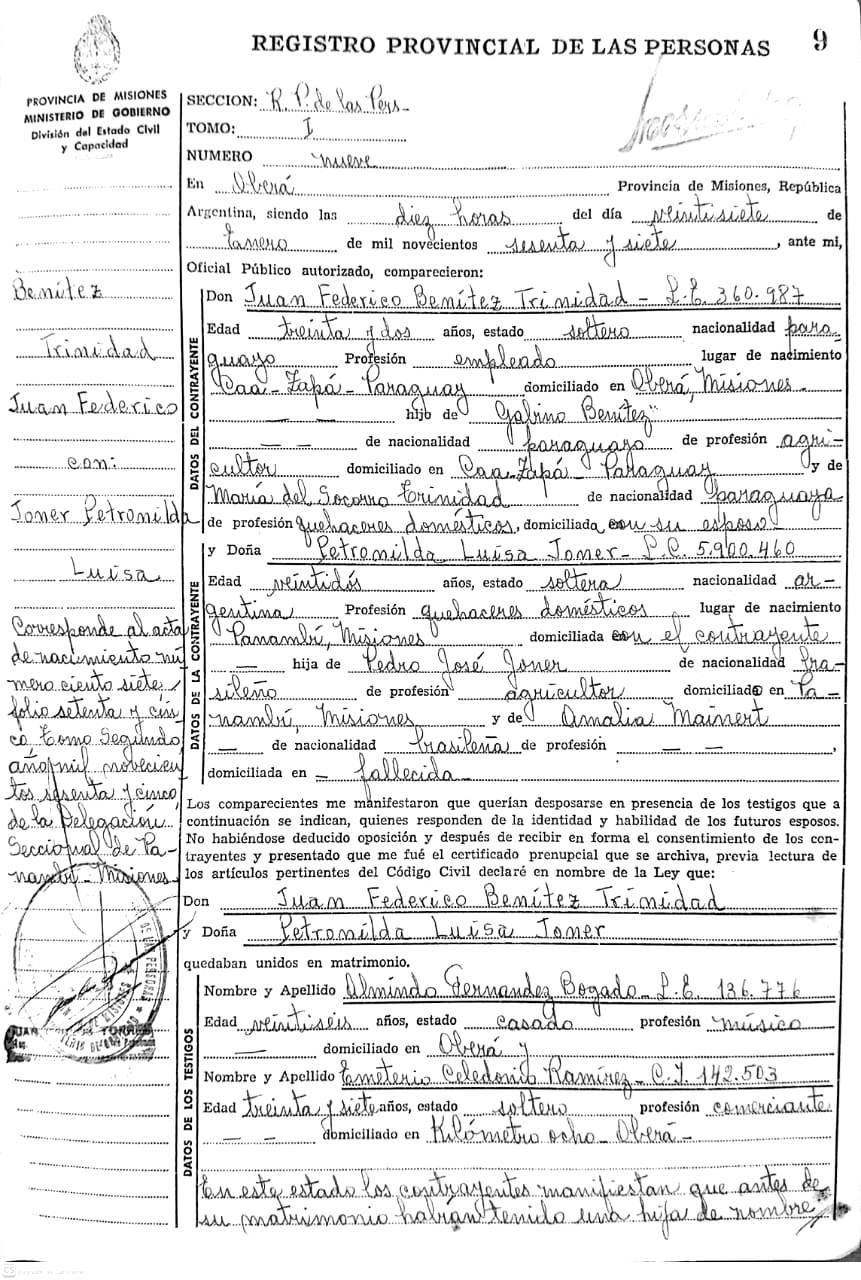 REGISTRO PROVINCIAL DE LAS PERSONAS
9
PROVINCIA DE MISIONES
MINISTERIO DE GOBIERNO
División del Estado Civil
y Capacidad
Benítez
Trinidad
Juan Federico
con:
Joner Petronilda
Luisa
Corresponde al acta
de nacimiento nú
mero ciento siete,
folio setenta y cin
co, Tomo Segundo,
año mil novecien
tos sesenta y cinco,
de la Delegación
Seccional de Pa-
nambí - Misiones
SECCION: R. P. de las Pers-
TOMO: I
NUMERO nueve
En Oberá Provincia de Misiones, República
Argentina, siendo las diez horas del día veintisiete de
Enero de mil novecientos sesenta y siete, ante mi,
Oficial Público autorizado, comparecieron:
DATOS DEL CONTRAYENTE
Don Juan Federico Benítez Trinidad - L.E. 360.987
Edad treinta y dos años, estado soltero nacionalidad para-
guayo Profesión empleado lugar de nacimiento
Caa-Zapá - Paraguay domiciliado en Oberá, Misiones-
— — hijo de Gabino Benítez
— — de nacionalidad paraguayo de profesión agri-
cultor domiciliado en Caa-Zapá - Paraguay y de
María del Socorro Trinidad de nacionalidad paraguaya
de profesión quehaceres domésticos, domiciliada con su esposo-
DATOS DE LA CONTRAYENTE
y Doña Petronilda Luisa Joner - L.C. 5.900.460
Edad veintidós años, estado soltera nacionalidad ar-
gentina Profesión quehaceres domésticos lugar de nacimiento
Panambí, Misiones domiciliada con el contrayente
— hija de Pedro José Joner de nacionalidad bra-
sileño de profesión agricultor domiciliado en Pa-
nambí, Misiones y de Amalia Mainert
— de nacionalidad brasileña de profesión — —,
domiciliada en - fallecida-
Los comparecientes me manifestaron que querían desposarse en presencia de los testigos que a
continuación se indican, quienes responden de la identidad y habilidad de los futuros esposos.
No habiéndose deducido oposición y después de recibir en forma el consentimiento de los con-
trayentes y presentado que me fué el certificado prenupcial que se archiva, previa lectura de
los artículos pertinentes del Código Civil declaré en nombre de la Ley que:
Don Juan Federico Benítez Trinidad
y Doña Petronilda Luisa Joner
quedaban unidos en matrimonio.
DATOS DE LOS TESTIGOS
Nombre y Apellido Almindo Fernandez Bogado - L.E. 136.776
Edad veintiseis años, estado casado profesión músico
— domiciliado en Oberá y
Nombre y Apellido Emeterio Celedonio Ramírez - C.I. 142.503
Edad treinta y siete años, estado soltero profesión comerciante
— — domiciliado en Kilómetro ocho - Oberá -
En este estado los contrayentes manifiestan que antes de
su matrimonio habían tenido una hija de nombre